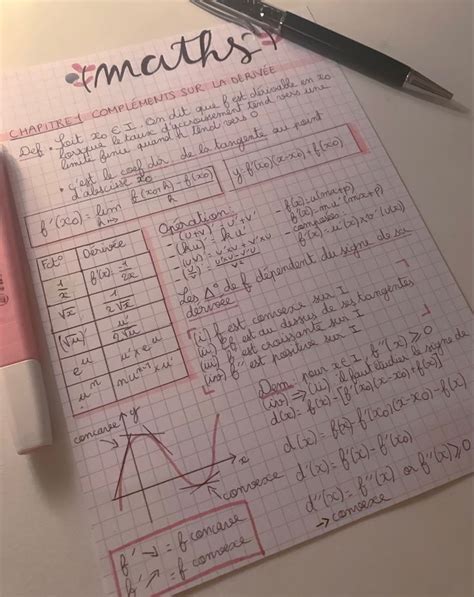 maths
CHAPITRE 1 COMPLÉMENTS SUR LA DÉRIVÉE
Def • Soit x₀ ∈ I. On dit que f est dérivable en x₀
lorsque le taux d'accroissement tend vers une
limite finie quand h tend vers 0
• c'est le coef dir. de la tangente au point
d'abscisse x₀
f'(x₀) = lim f(x₀+h) - f(x₀) / h
h→
y = f'(x₀)(x-x₀) + f(x₀)
Fct° Dérivée
1/x f'(x) =
√x 1/2√x
(√u)' u'/2√u
eᵘ u' × eᵘ
uⁿ
Opération:
(u+v)' = u'+v'
(ku)' = ku'
(uv)' = u'v+v'u
- f(x) = u(mx+p)
f'(x) = mu'(mx+p)
- composées
Les Δ° de f dépendent du signe de sa
dérivée
(i) f est convexe sur I
(ii) Cf est au dessus de ses tangentes
(iii) f' est croissante sur I
(iv) f'' est positive sur I
Dem pour x ∈ I, f''(x) ≥ 0
(iv) ⇒ (ii) il faut étudier le signe de
d(x) = f(x) - [f'(x₀)(x-x₀) + f(x₀)]
d(x) = f(x) - f'(x₀)(x-x₀) - f(x₀)
d'(x) = f'(x) - f'(x₀)
d''(x) = f''(x) or f''(x) ≥ 0
→ convexe
concave y
x
convexe
f' ↘ = f concave
f' ↗ = f convexe